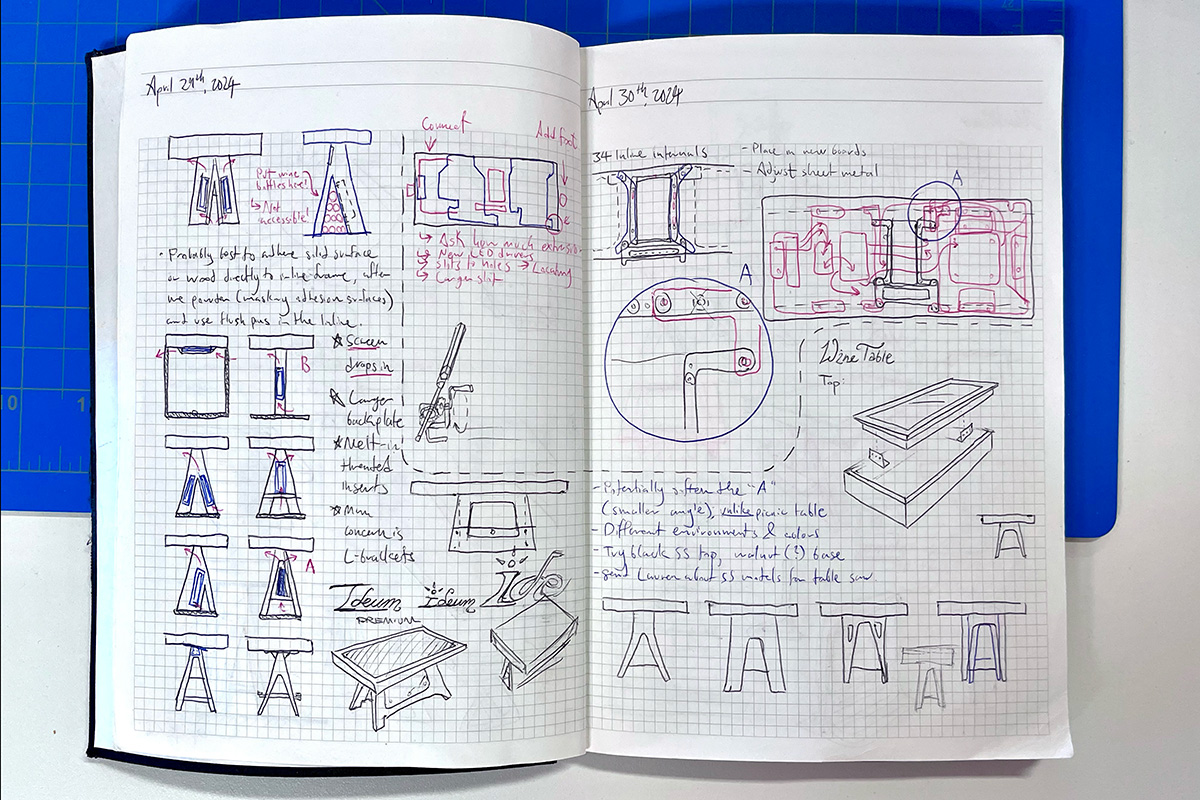 April 29th, 2024
Put wine
bottles here!
↳ Not
accessible!
• Probably best to adhere solid surface
or wood directly to inline frame, after
we powder (masking adhesion surfaces)
and use flush pins in the Inline.
Connect
Add foot
↳ Ask how much extrusion
↳ New LED drivers
↳ Slits to holes → Locating
↳ Larger slit
B
☆ Screen
drops in
☆ Larger
backplate
☆ Melt-in
threaded
inserts
☆ Main
concern is
L-brackets
A
Ideum
PREMIUM
Ideum
April 30th, 2024
34 Inline internals
- Place in new boards
- Adjust sheet metal
A
A
Wine Table
Top:
- Potentially soften the "A"
(smaller angle), unlike picnic table
- Different environments & colors
- Try black SS top, walnut (?) base
- Send Lauren about SS models for table saw
0
1